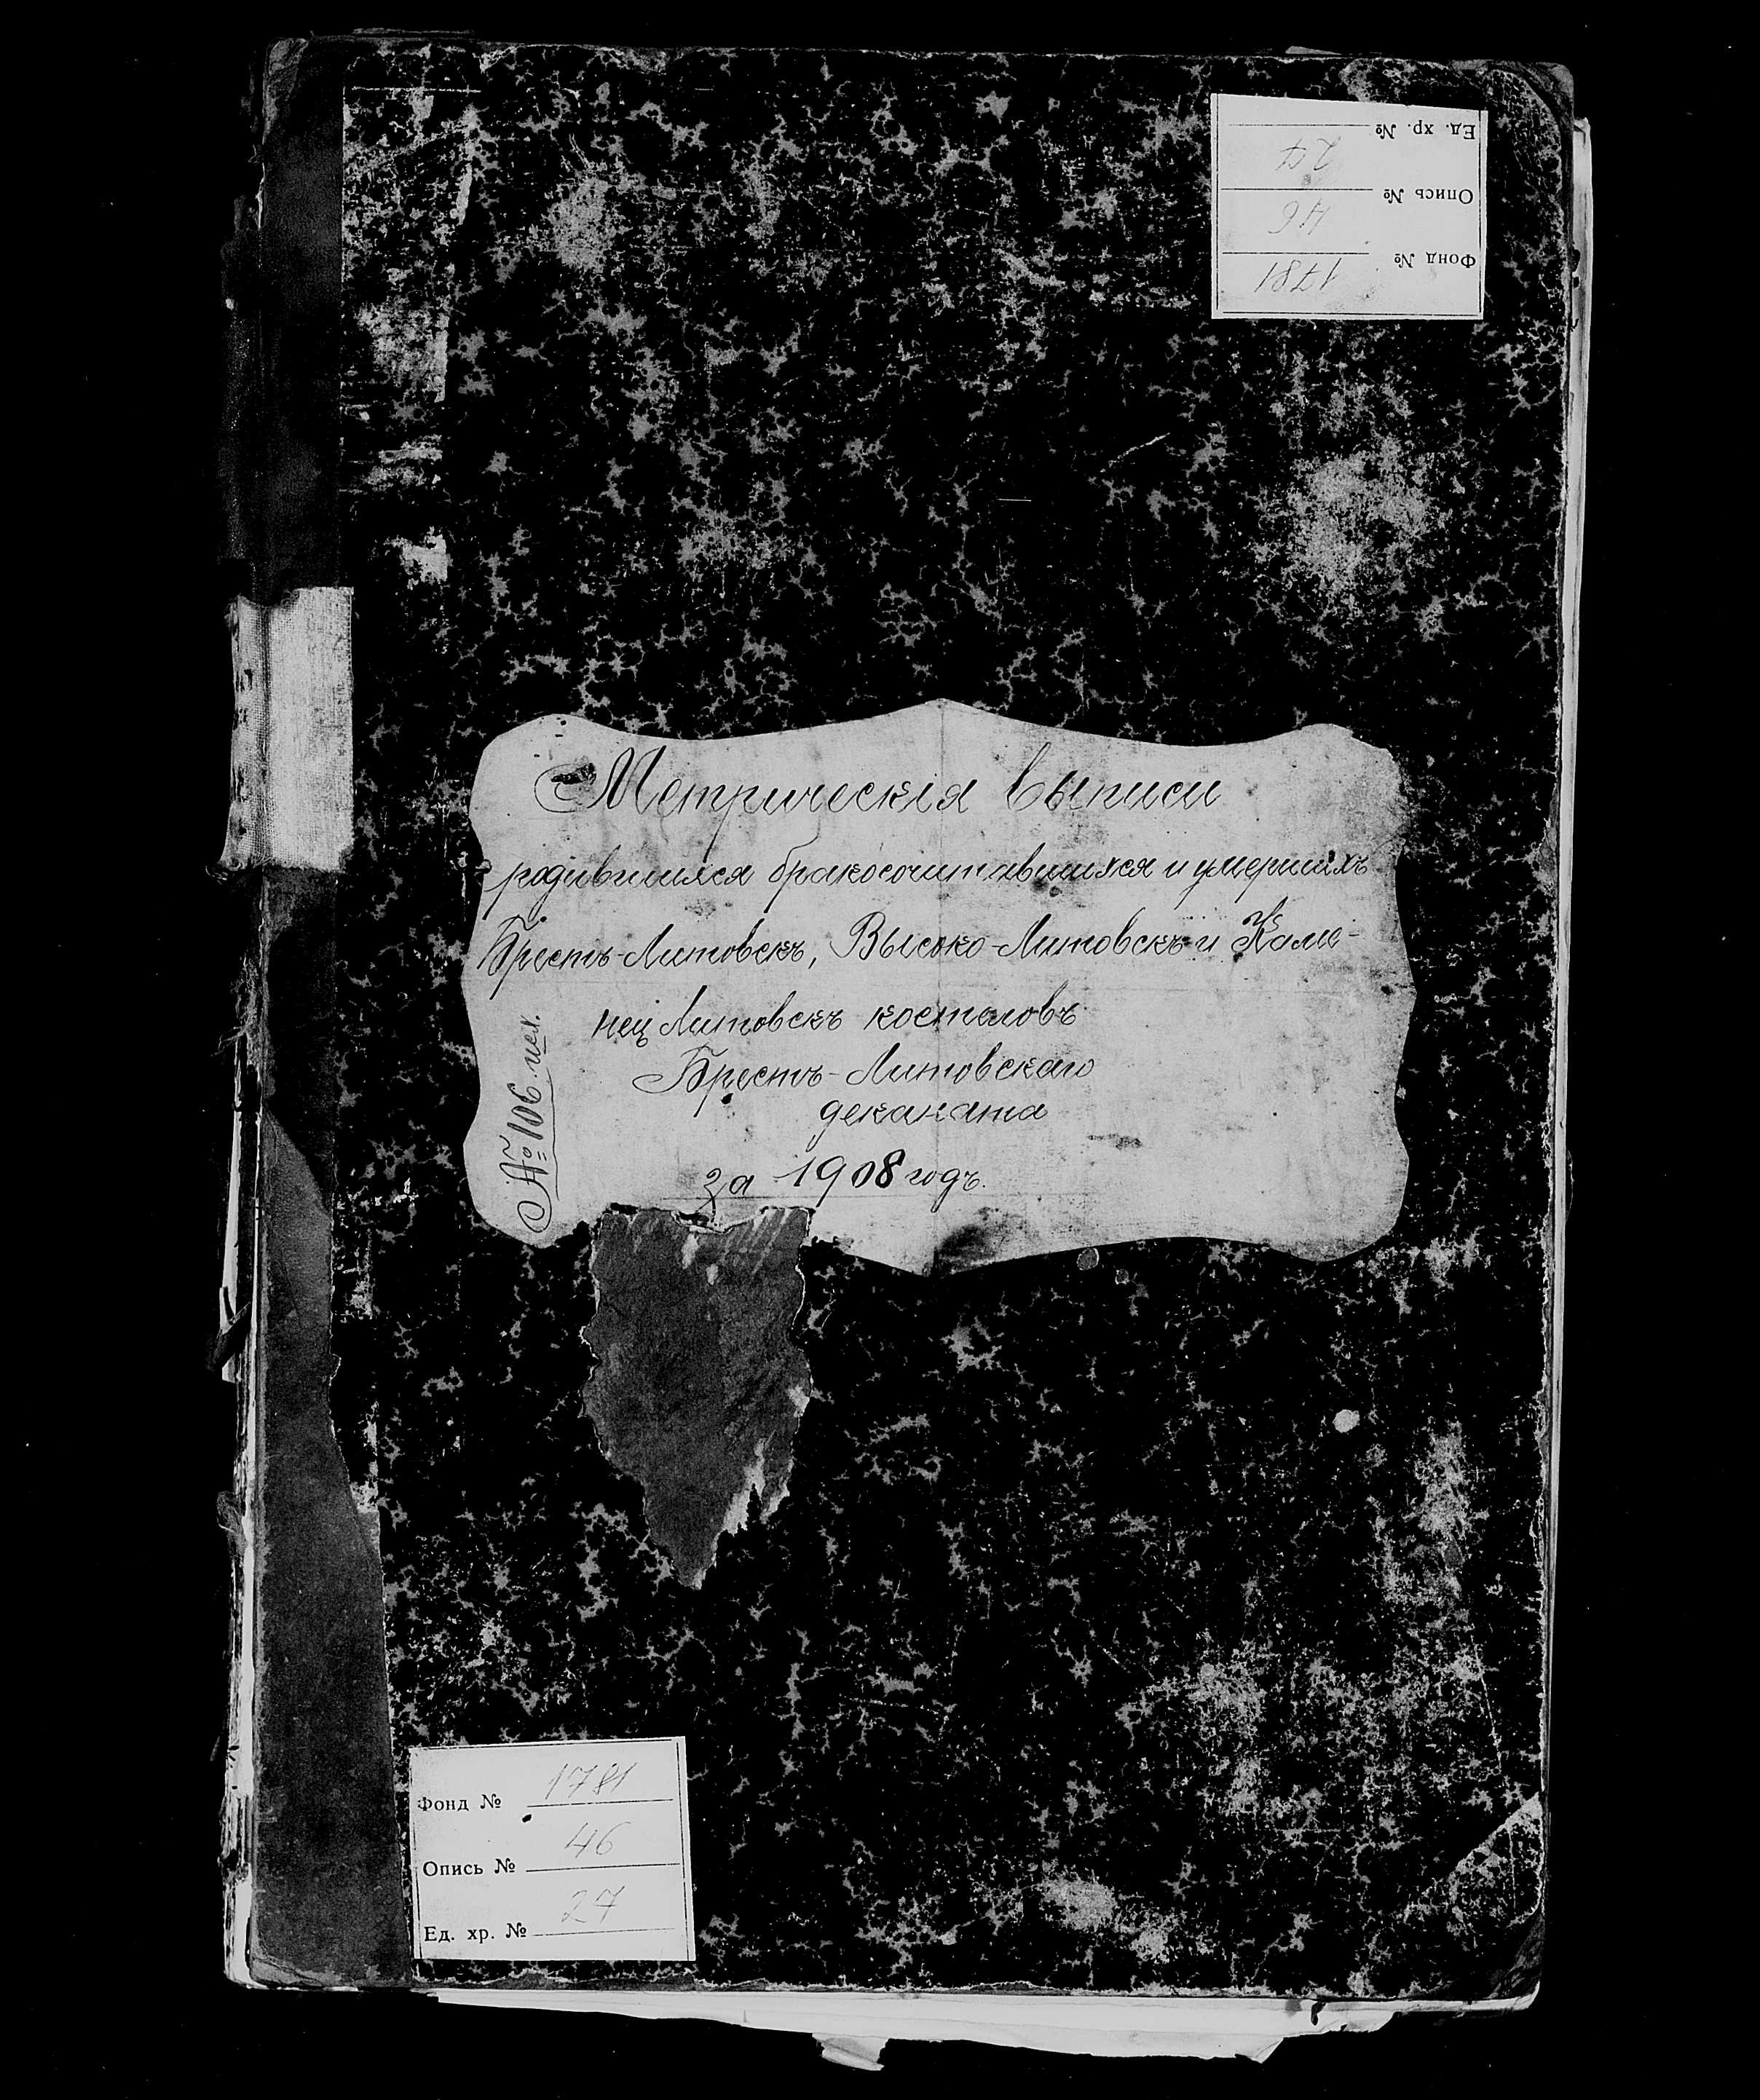 Ед. хр. № 27
Опись № 46
Фонд № 1781
Метрическія выписи
родившихся бракосочитавшихся и умершихъ
Брестъ-Литовскъ, Высоко-Литовскъ и Каме-
нец Литовскъ костеловъ
Брестъ-Литовскаго
деканата
за 1908 годъ.
№ 106
Фонд № 1781
Опись № 46
Ед. хр. № 27